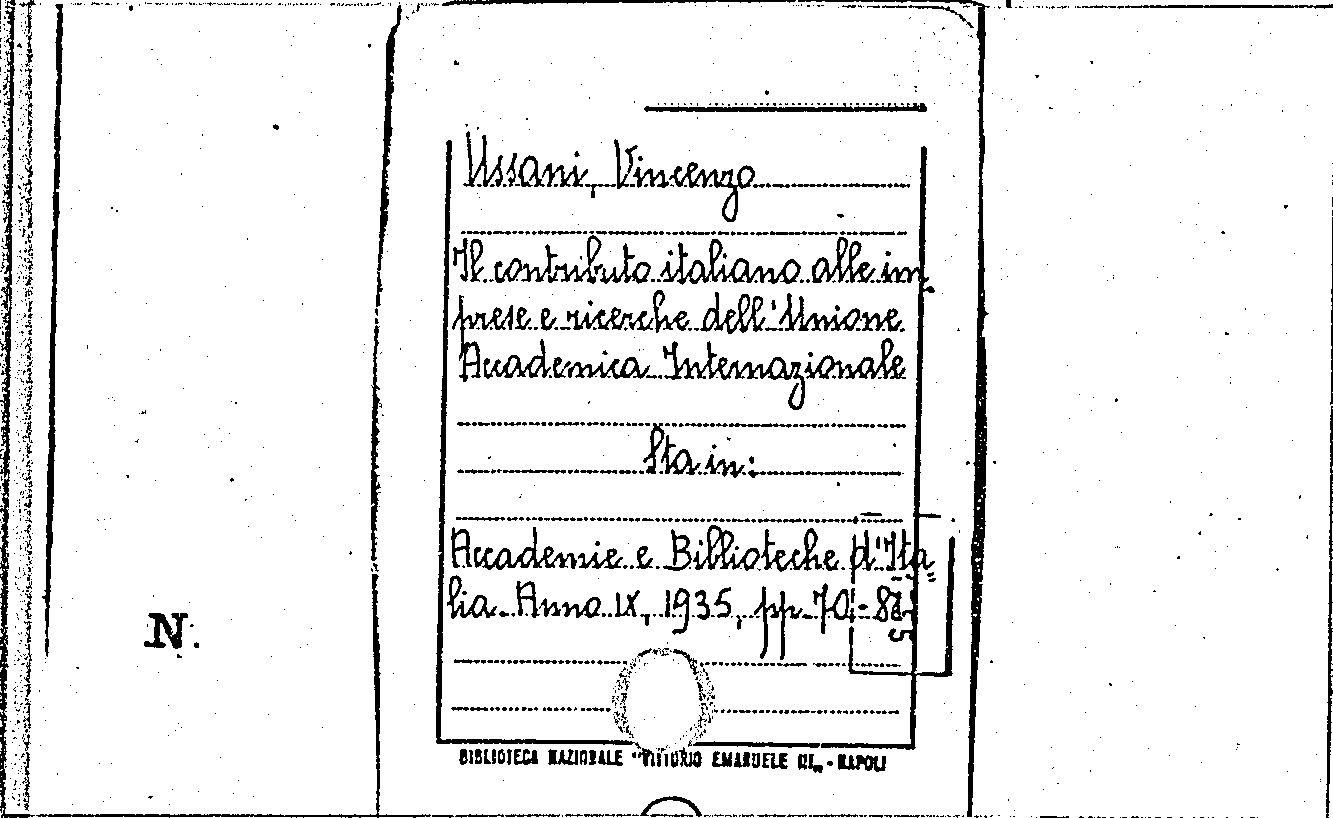 Ussani, Vincenzo
Il contributo italiano alle im-
prese e ricerche dell'Unione
Accademica Internazionale
Sta in:
Accademie e Biblioteche d'Ita-
lia. Anno IX, 1935, pp. 70-
N.
BIBLIOTECA NAZIONALE "VITTORIO EMANUELE III" - NAPOLI